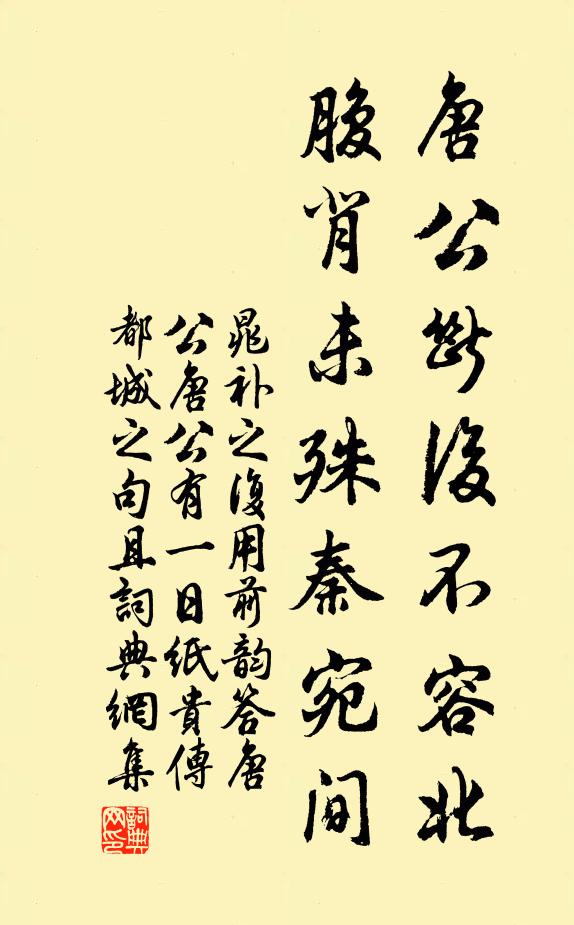 唐公斷後不容北
腹背未殊秦宛間
晁补之復用前韵答唐
公唐公有一日紙貴傳
都城之句且詞典網集
詞典網印